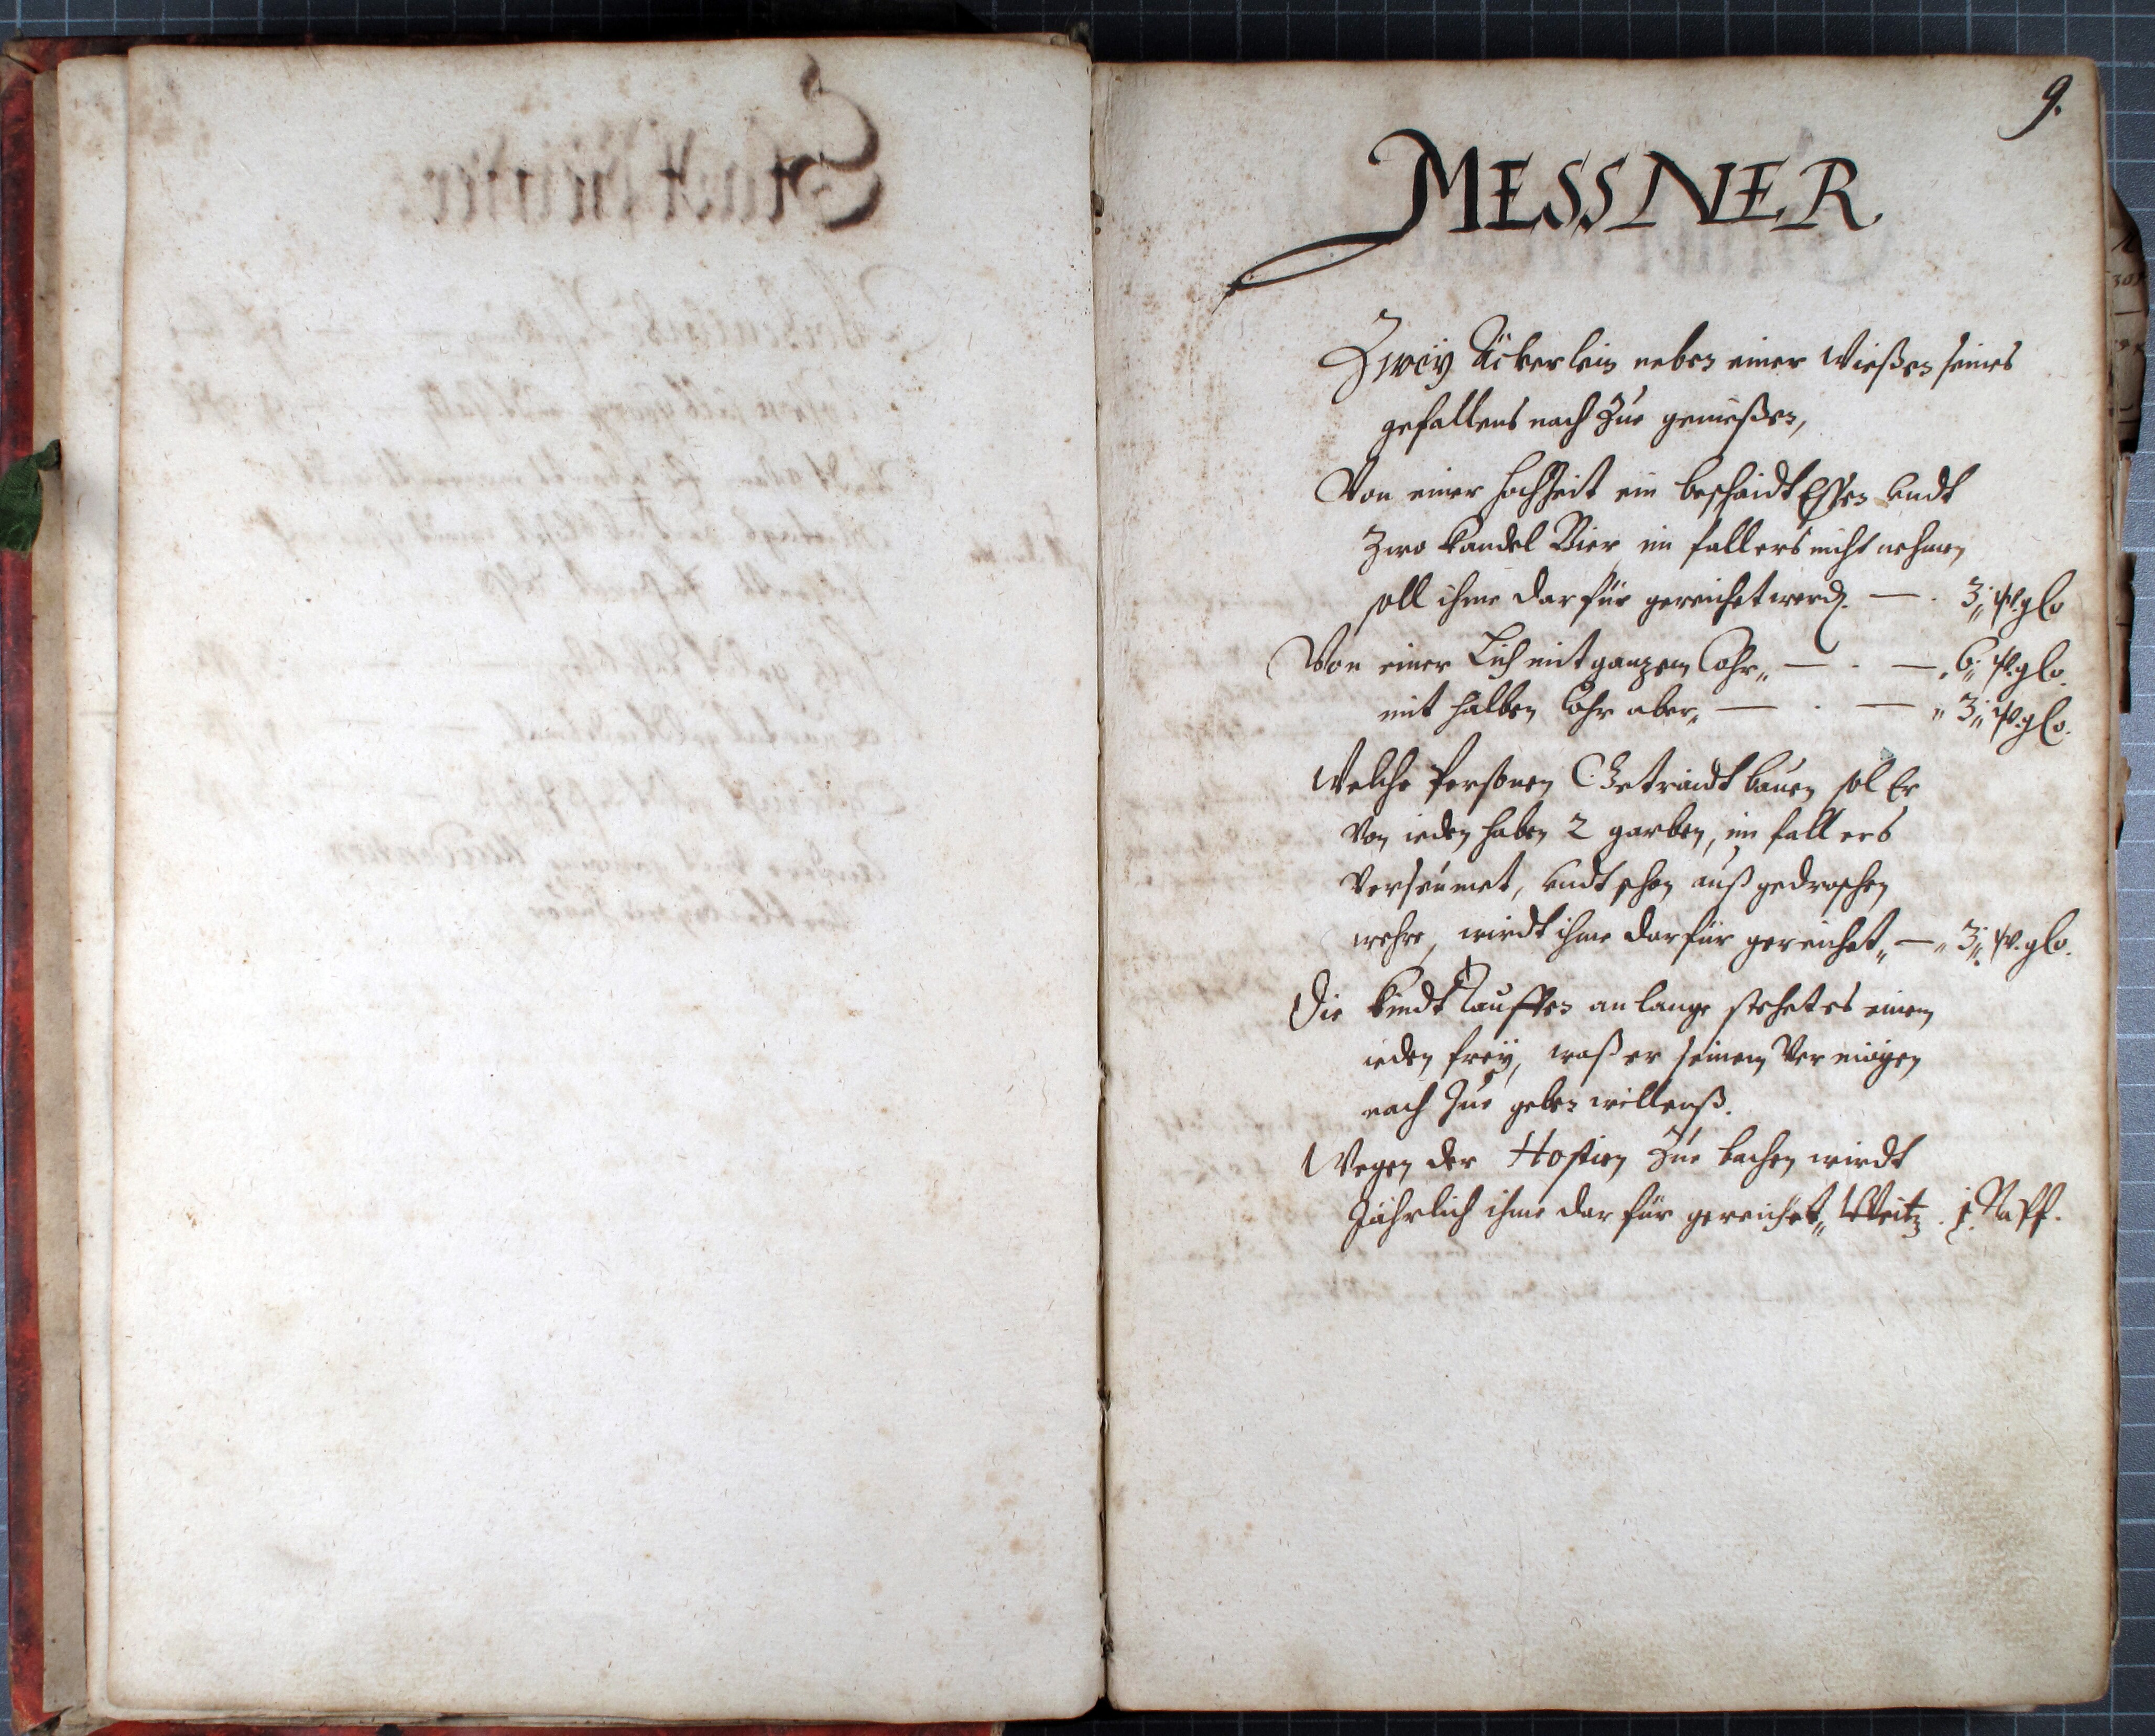 9.
MESSNER
Zweÿ Äckerlein neben einer Wießen seines
gefallens nach Zue genießen,
Von einer Hochzeit ein bescheidt Essen undt
Zwo Kandel Bier im fall ers nicht nehmen
soll ihme darfür gereichet werd. — . 3
Von einer Lich mit ganzem Cohr„ — . — „ 6
mit halben Cohr aber„ — . — „ 3
Welche Personen Getraidt bauen sol Er
Von ieden haben 2 garben, im fall ers
Verseumet, undt schon auß gedroschen
wehre, wirdt ihme darfür gereichet„ — „ 3
Die Kindt Tauffen anlange stehet es einem
ieden freÿ, waß er seinem Vermögen
nach Zue geben willenß.
Wegen der Hostien Zue bachen wirdt
Jährlich ihme darfür gereichet„ Weitz . j. Napf.